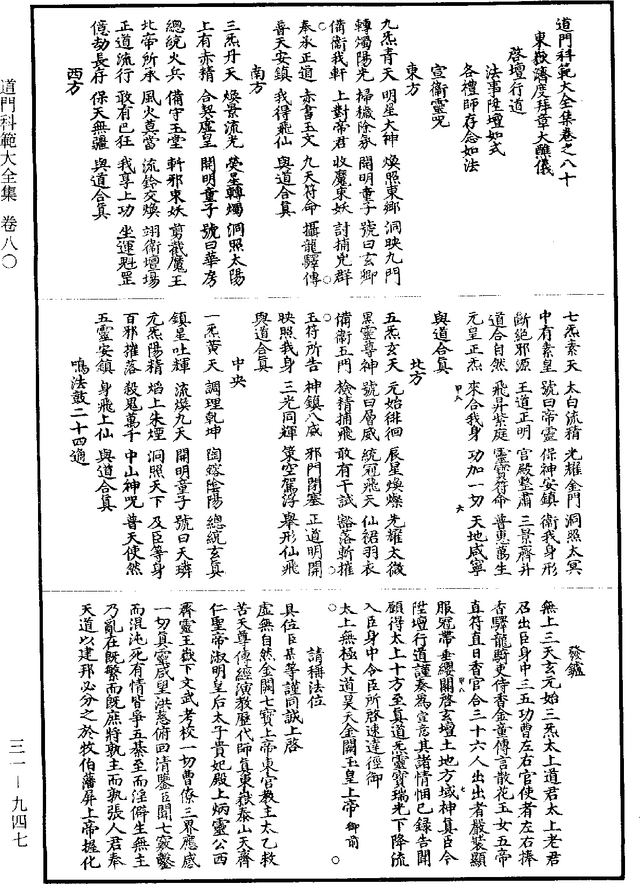 道門科範大全集卷之八十
東嶽濟度拜章大醮儀
啓壇行道
法事陞壇如式
各禮師存念如法
宣衞靈咒
東方
九炁青天 明星大神 煥照東鄉 洞映九門
轉燭陽光 掃穢除氛 開明童子 號曰玄卿
備衞我軒 上對帝君 收魔束妖 討捕兇群
奉承正道 赤書玉文 九天符命 攝龍驛傳
普天安鎮 我得飛仙 與道合真
南方
三炁丹天 煥景流光 熒星轉燭 洞照太陽
上有赤精 合契虛皇 開明童子 號曰華房
總統火兵 備守玉堂 斬邪束妖 剪截魔王
北帝所承 風火莫當 流鈴交煥 翊衞壇場
正道流行 敢有巴狂 我享上功 坐運魁罡
億劫長存 保天無疆 與道合真
西方
七炁素天 太白流精 光耀金門 洞照太冥
中有素皇 號曰帝靈 保神安鎮 衞我身形
斷絕邪源 王道正明 宮殿整肅 三景齊并
道合自然 飛昇紫庭 靈寶符命 普惠萬生
元皇正炁 來合我身 功加一切 天地咸寧
與道合真
北方
五炁玄天 元始徘徊 辰星煥爛 光耀太微
黑靈尊神 號曰層威 統冠飛天 仙裙羽衣
備衞五門 檢精捕飛 敢有干試 豁落斬摧
玉符所告 神鎮八威 邪門閉塞 正道明開
映照我身 三光同輝 策空駕浮 舉形仙飛
與道合真
中央
一炁黃天 調理乾坤 陶鎔陰陽 總統玄真
鎮星吐輝 流煥九天 開明童子 號曰天璘
元炁陽精 焰上朱煙 洞照天下 及臣等身
百邪摧落 殺鬼萬千 中山神咒 普天使然
五靈安鎮 身飛上仙 與道合真
鳴法鼓二十四通
發鑪
無上三天玄元始三炁太上道君太上老君
召出臣身中三五功曹左右官使者左右捧
香驛龍騎吏侍香金童傳言散花玉女五帝
直符直日香官合三十六人出出者嚴裝顯
服冠帶垂纓關啓玄壇土地方域神真臣今
陞壇行道謹奏為宣言其諸情悃已錄告聞
願得太上十方至真道炁靈寶瑞光下降流
入臣身中令臣所啓速達徑御
太上無極大道昊天金闕玉皇上帝御前
請稱法位
具位臣某等謹同誠上啓
虛無自然金闕七寶上帝東宮教主太乙救
苦天尊傳經演教歷代師真東嶽泰山天齊
仁聖帝淑明皇后太子貴妃殿上炳靈公西
齊靈王嶽下文武考校一切曹僚三界應感
一切真靈咸望洪慈俯回清鑒臣聞七竅鑿
而混沌死有情皆爭五綦至而淫僻生無主
乃亂在既繁而既庶將孰主而孰張人君奉
天道以建邦必分之於牧伯藩屏上帝握化
道門科範大全集 卷八〇
三一-九四七